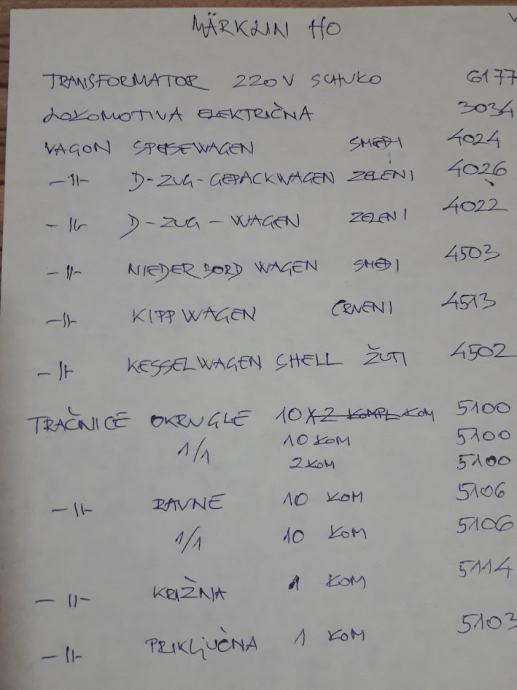 MÄRKLIN HO
TRANSFORMATOR 220V SCHUKO 6177
LOKOMOTIVA ELEKTRIČNA 3034
VAGON SPEISEWAGEN SMEĐI 4024
-||- D-ZUG-GEPÄCKWAGEN ZELENI 4026
-||- D-ZUG-WAGEN ZELENI 4022
-||- NIEDERBORDWAGEN SMEĐI 4503
-||- KIPPWAGEN CRVENI 4513
-||- KESSELWAGEN SHELL ŽUTI 4502
TRAČNICE OKRUGLE 10 X 2 KOMPL KOM 5100
1/1 10 KOM 5100
2 KOM 5100
-||- RAVNE 10 KOM 5106
1/1 10 KOM 5106
-||- KRIŽNA 1 KOM 5114
-||- PRIKLJUČNA 1 KOM 5103